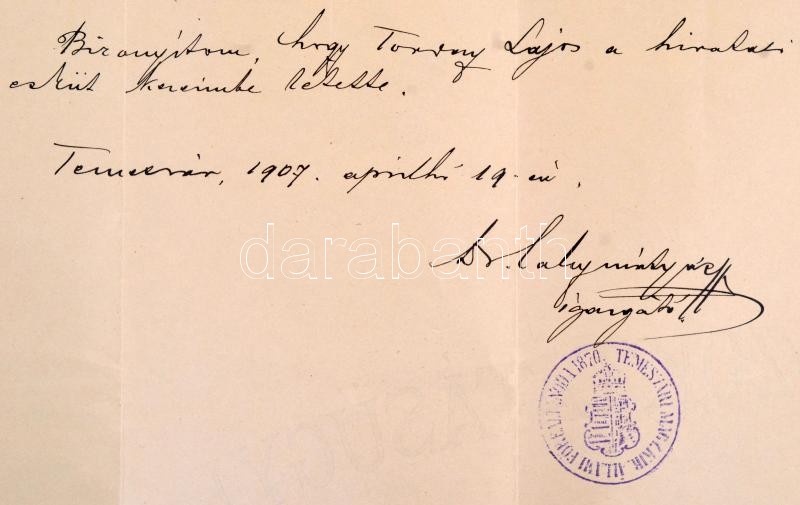 Bizonyítom, hogy Torday Lajos a hivatali
esküt kezeimbe letette.
Temesvár, 1907. április hó 19-én.
Dr.
igazgató
darabanth
TEMESVÁRI MAG. KIR. ÁLLAMI FŐREÁLISKOLA 1870.